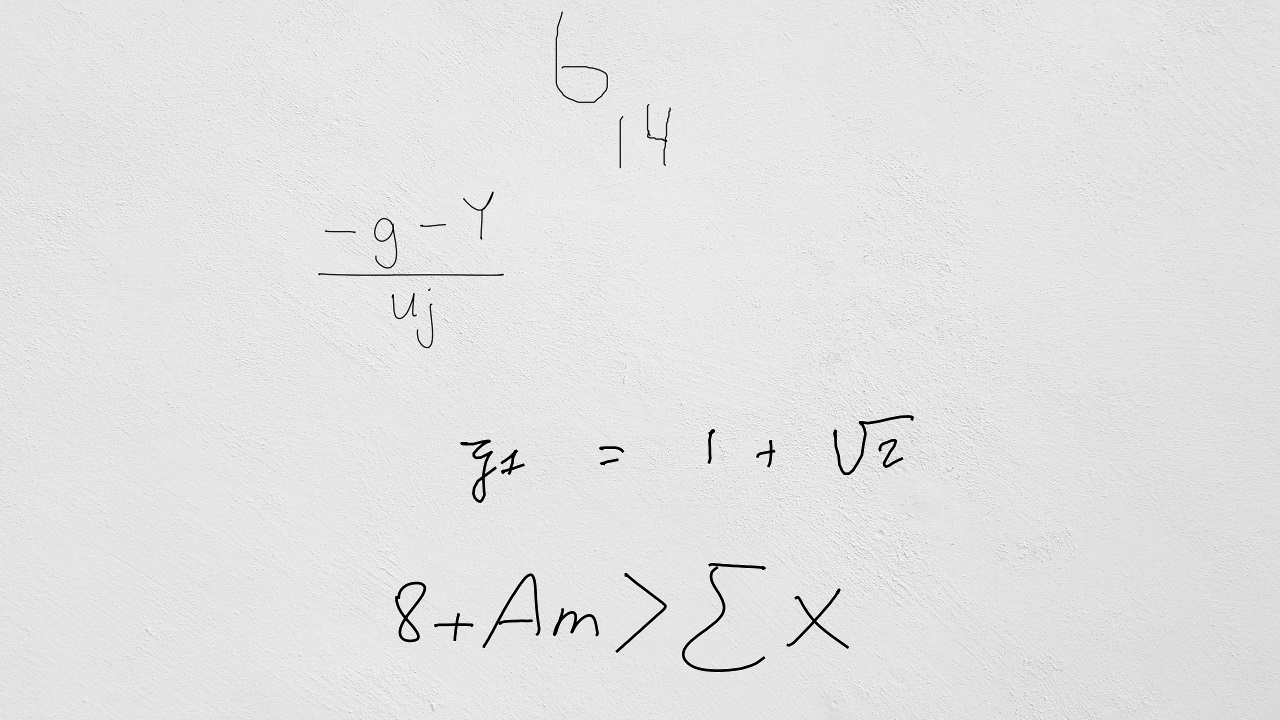 6₁₄
(-g-Y)/(uj)
z₁ = 1 + √2
8+Am>∑X